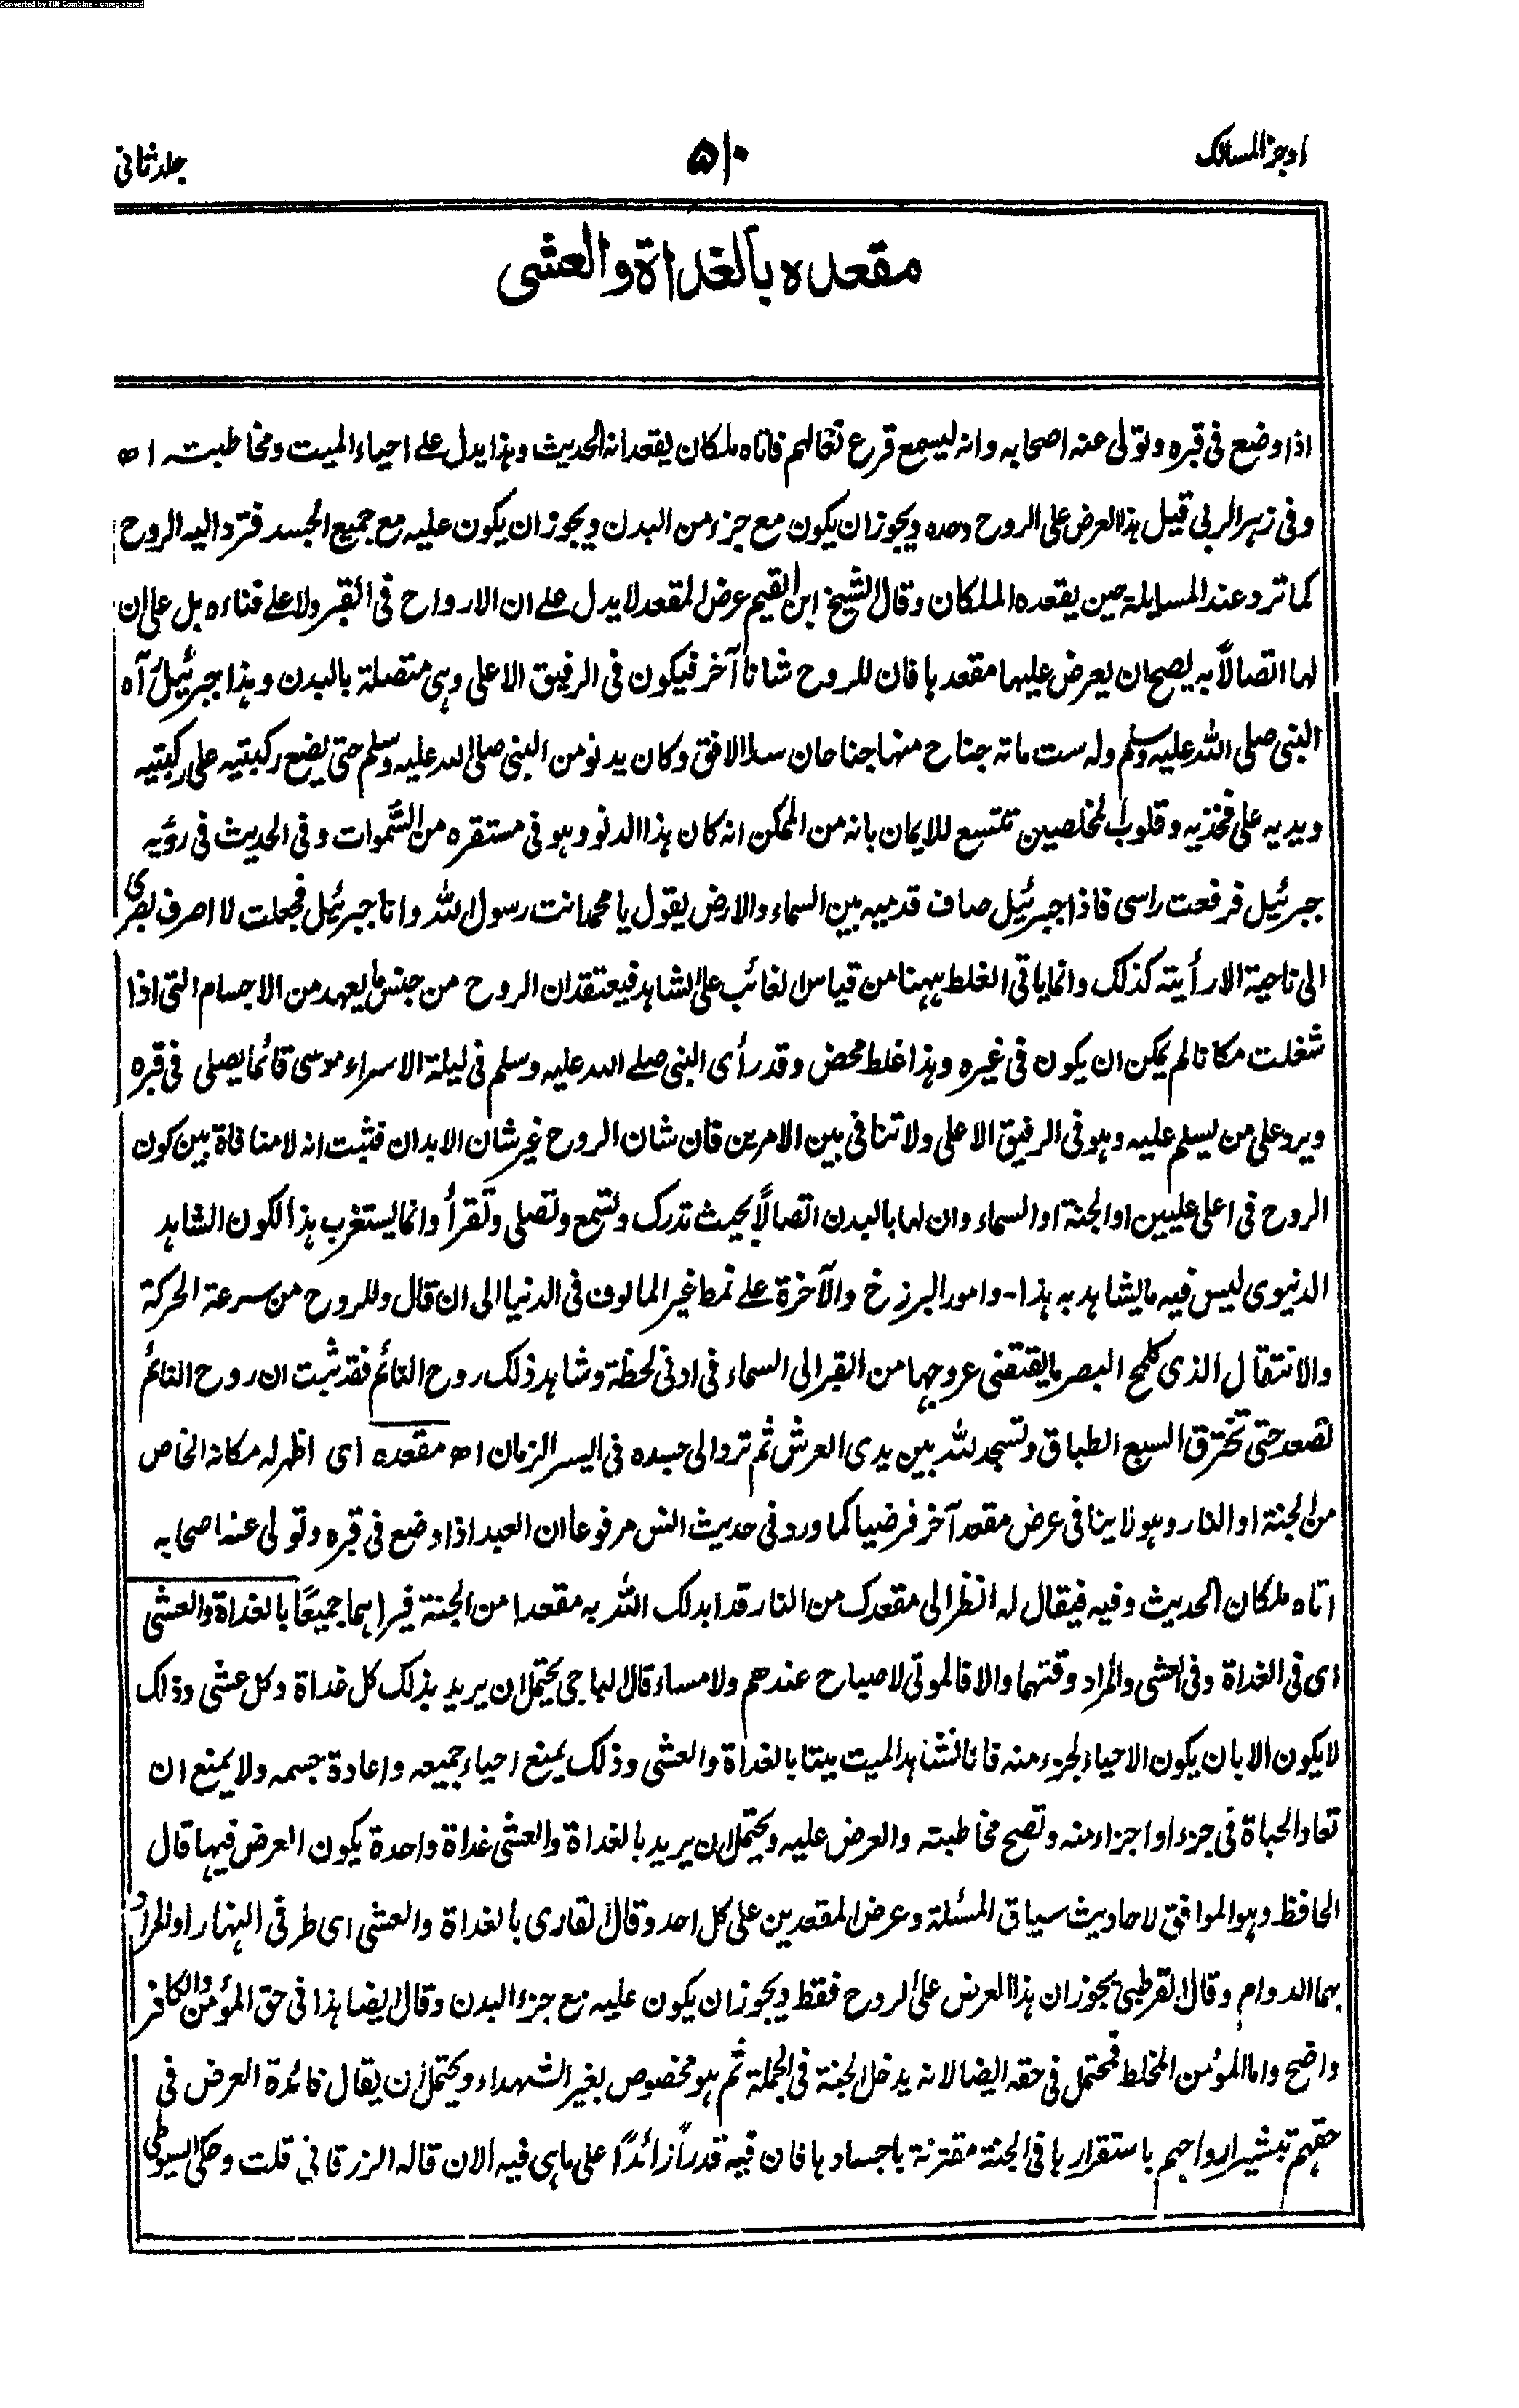 Converted by Tiff Combine - unregistered
اوجز المسالك
٥١٠
جلد ثانی
مقعده بالغداة والعشی
اذا وضع فی قبره وتولی عنه اصحابه وانه لیسمع قرع نعالهم فاتاه ملكان یقعدانه الحدیث وہذا یدل علے احیاء المیت ومخاطبته اھ
وفی زہر الربی قیل ہذا العرض علی الروح وحده ویجوز ان یكون مع جزء من البدن ویجوز ان یكون علیه مع جمیع الجسد فترد الیه الروح
كما ترد عند المسایلة حین یقعده الملكان وقال الشیخ ابن القیم عرض المقعد لا یدل علے ان الارواح فی القبر ولا علے فناءه بل علی ان
لہا اتصالاً به یصح ان یعرض علیہا مقعدہا فان للروح شاناً آخر فیكون فی الرفیق الاعلی وہی متصلة بالبدن وہذا جبرئیل رآه
النبی صلی الله علیه وسلم وله ست ماته جناح منہا جناحان سدا الافق وكان یدنو من النبی صلی الله علیه وسلم حتی یضع ركبتیه علی ركبتیه
ویدیه علی فخذیه وقلوب المخلصین تتسع للایمان بانه من الممكن انه كان ہذا الدنو وہو فی مستقره من السّموات وفی الحدیث فی رؤیه
جبرئیل فرفعت راسی فاذا جبرئیل صاف قدمیه بین السماء والارض یقول یا محمد انت رسول الله وانا جبرئیل فجعلت لا اصرف بصری
الی ناحیة الا رأیته كذلك وانما یاتی الغلط ہہنا من قیاس الغائب علی الشاہد فیعتقد ان الروح من جنس ما یعہد من الاجسام التی اذا
شغلت مكانا لم یمكن ان یكون فی غیره وہذا غلط محض وقد رأی النبی صلے الله علیه وسلم فی لیلة الاسراء موسی قائما یصلی فی قبره
ویرد علی من یسلم علیه وہو فی الرفیق الاعلی ولا تنافی بین الامرین فان شان الروح غیر شان الابدان فثبت انه لا منافاة بین كون
الروح فی اعلی علیین او الجنة او السماء وان لہا بالبدن اتصالاً بحیث تدرك وتسمع وتصلی وتقرأ وانما یستغرب ہذا لكون الشاہد
الدنیوی لیس فیه ما یشاہد به ہذا - وامور البرزخ والآخرة علے نمط غیر المالوف فی الدنیا الی ان قال وللروح من سرعة الحركة
والانتقال الذی كلمح البصر ما یقتضی عروجہا من القبر الی السماء فی ادنی لحظة وشاہد ذلك روح النائم فقد ثبت ان روح النائم
تصعد حتی تخترق السبع الطباق وتسجد لله بین یدی العرش ثم ترد الی جسده فی ایسر الزمان اھ مقعده ای اظہر له مكانه الخاص
من الجنة او النار وہو لا ینافی عرض مقعد آخر فرضیا كما ورد فی حدیث انس مرفوعا ان العبد اذا وضع فی قبره وتولی عنه اصحابه
اتاه ملكان الحدیث وفیه فیقال له انظر الی مقعدك من النار قد ابدلك الله به مقعدا من الجنة فیراہما جمیعًا بالغداة والعشی
ای فی الغداة وفی العشی والمراد وقتہما والا فالموتی لا صباح عندهم ولا مساء قال الباجی یحتمل ان یرید بذلك كل غداة وكل عشی وذلك
لا یكون الا بان یكون الاحیاء لجزء منه فانا نشاہد المیت میتا بالغداة والعشی وذلك یمنع احیاء جمیعه واعادة جسمه ولا یمنع ان
تعاد الحیاة فی جزء او اجزاء منه وتصح مخاطبته والعرض علیه ویحتمل ان یرید بالغداة والعشی غداة واحدة یكون العرض فیہا قال
الحافظ وہو الموافق لاحادیث سیاق المسئلة وعرض المقعدین علی كل احد وقال القاری بالغداة والعشی ای طرفی النہار او المراد
بہما الدوام وقال القرطبی یجوز ان ہذا العرض علی الروح فقط ویجوز ان یكون علیه مع جزء البدن وقال ایضا ہذا فی حق المؤمن والكافر
واضح واما المؤمن المخلط فمحتمل فی حقه ایضا لانه یدخل الجنة فی الجملة ثم ہو مخصوص بغیر الشہداء ویحتمل ان یقال فائدة العرض فی
حقہم تبشیر ارواحہم باستقرارہا فی الجنة مقترنة باجسادہا فان فیه قدراً زائداً علی ماہی فیه الان قاله الزرقانی قلت وحكی السیوطی